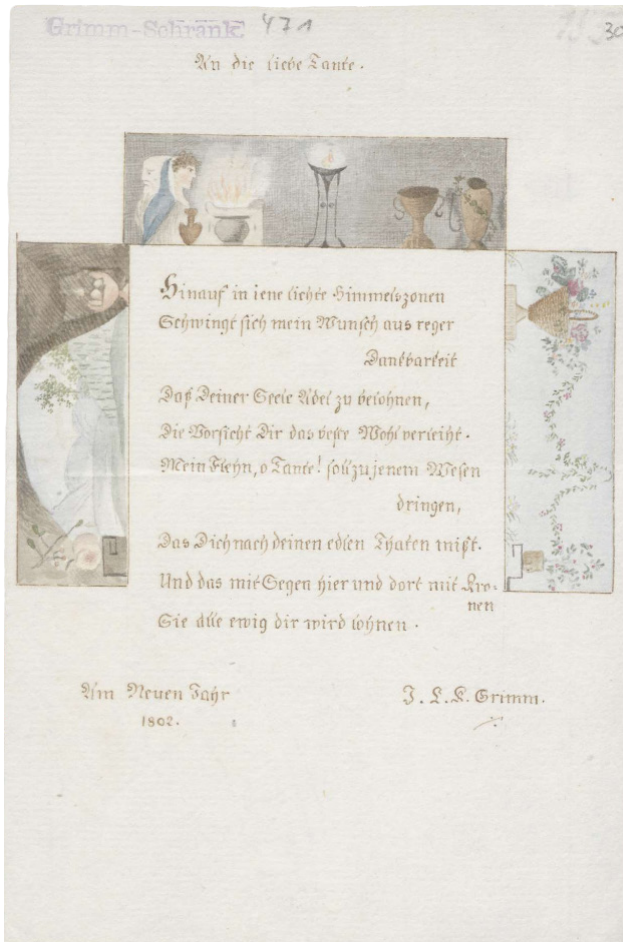 Grimm-Schrank 471
30
An die liebe Tante.
Hinauf in iene lichte Himmelszonen
Schwingt sich mein Wunsch aus reger
Dankbarkeit
Daß Deiner Seele Adel zu belohnen,
Die Vorsicht Dir das beste Wohl verleiht.
Mein Flehn, o Tante! soll zu jenem Wesen
dringen,
Das Dich nach deinen edlen Thaten mißt.
Und das mit Segen hier und dort mit Kro-
nen
Sie alle ewig dir wird lohnen.
Am Neuen Jahr
1802.
J. L. K. Grimm.